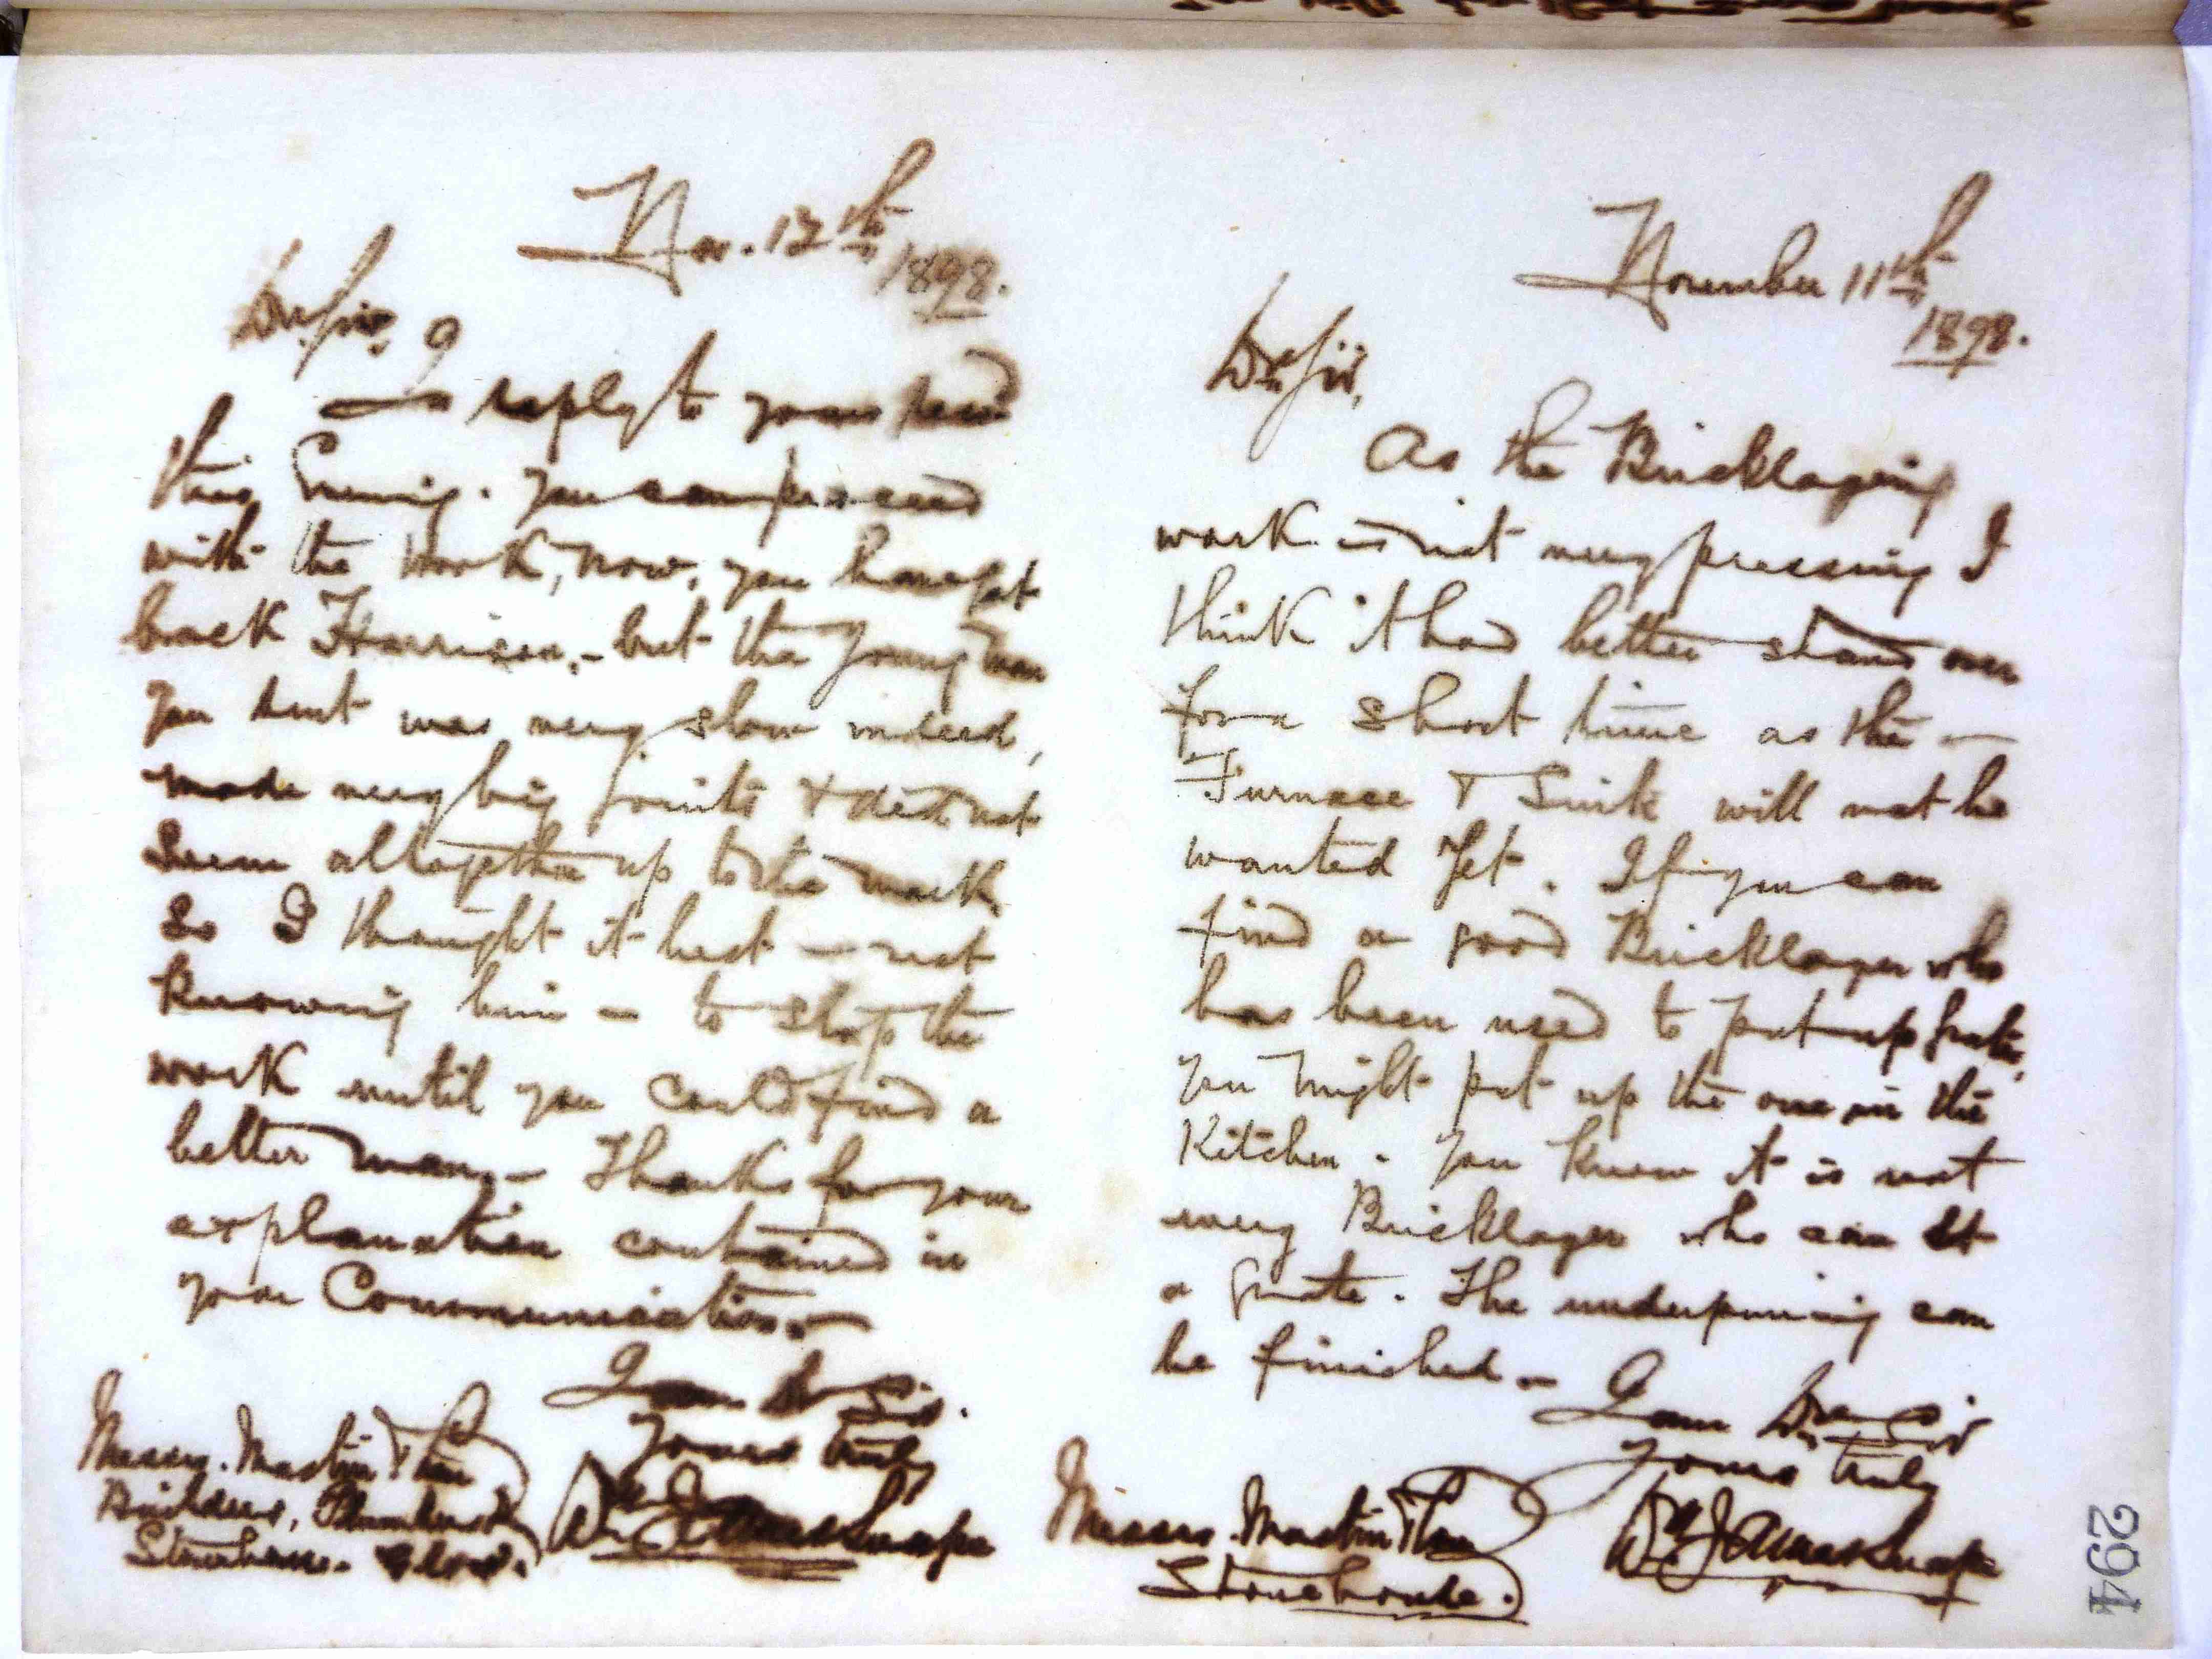 Nov. 12th
1898.
Dr Sir,
In reply to yours recd
this Evening. You can proceed
with the work, now, you have got
back Harrison, - but the young man
you sent was very slow indeed,
made very big joints & did not
seem altogether up to the mark,
so I thought it best - not
knowing him - to stop the
work until you could find a
better man, - Thanks for your
explanation contained in
your Communication. -
I am Dr Sir.
Yours truly
Messrs. Martin & Son
Builders, Plumbers &
Stonehouse. Glos.
November 11th
1898.
Dr Sir,
As the Bricklaying
work is not very pressing I
think it had better stand over
for a short time as the -
Furnace & Sink will not be
wanted yet. If you can
find a good Bricklayer who
has been used to put up Grates,
you might put up the one in the
Kitchen. You know it is not
every Bricklayer who can set
a Grate. The underpinning can
be finished - I am Dear Sir
Yours truly
Messrs. Martin & Son
Stonehouse.
294